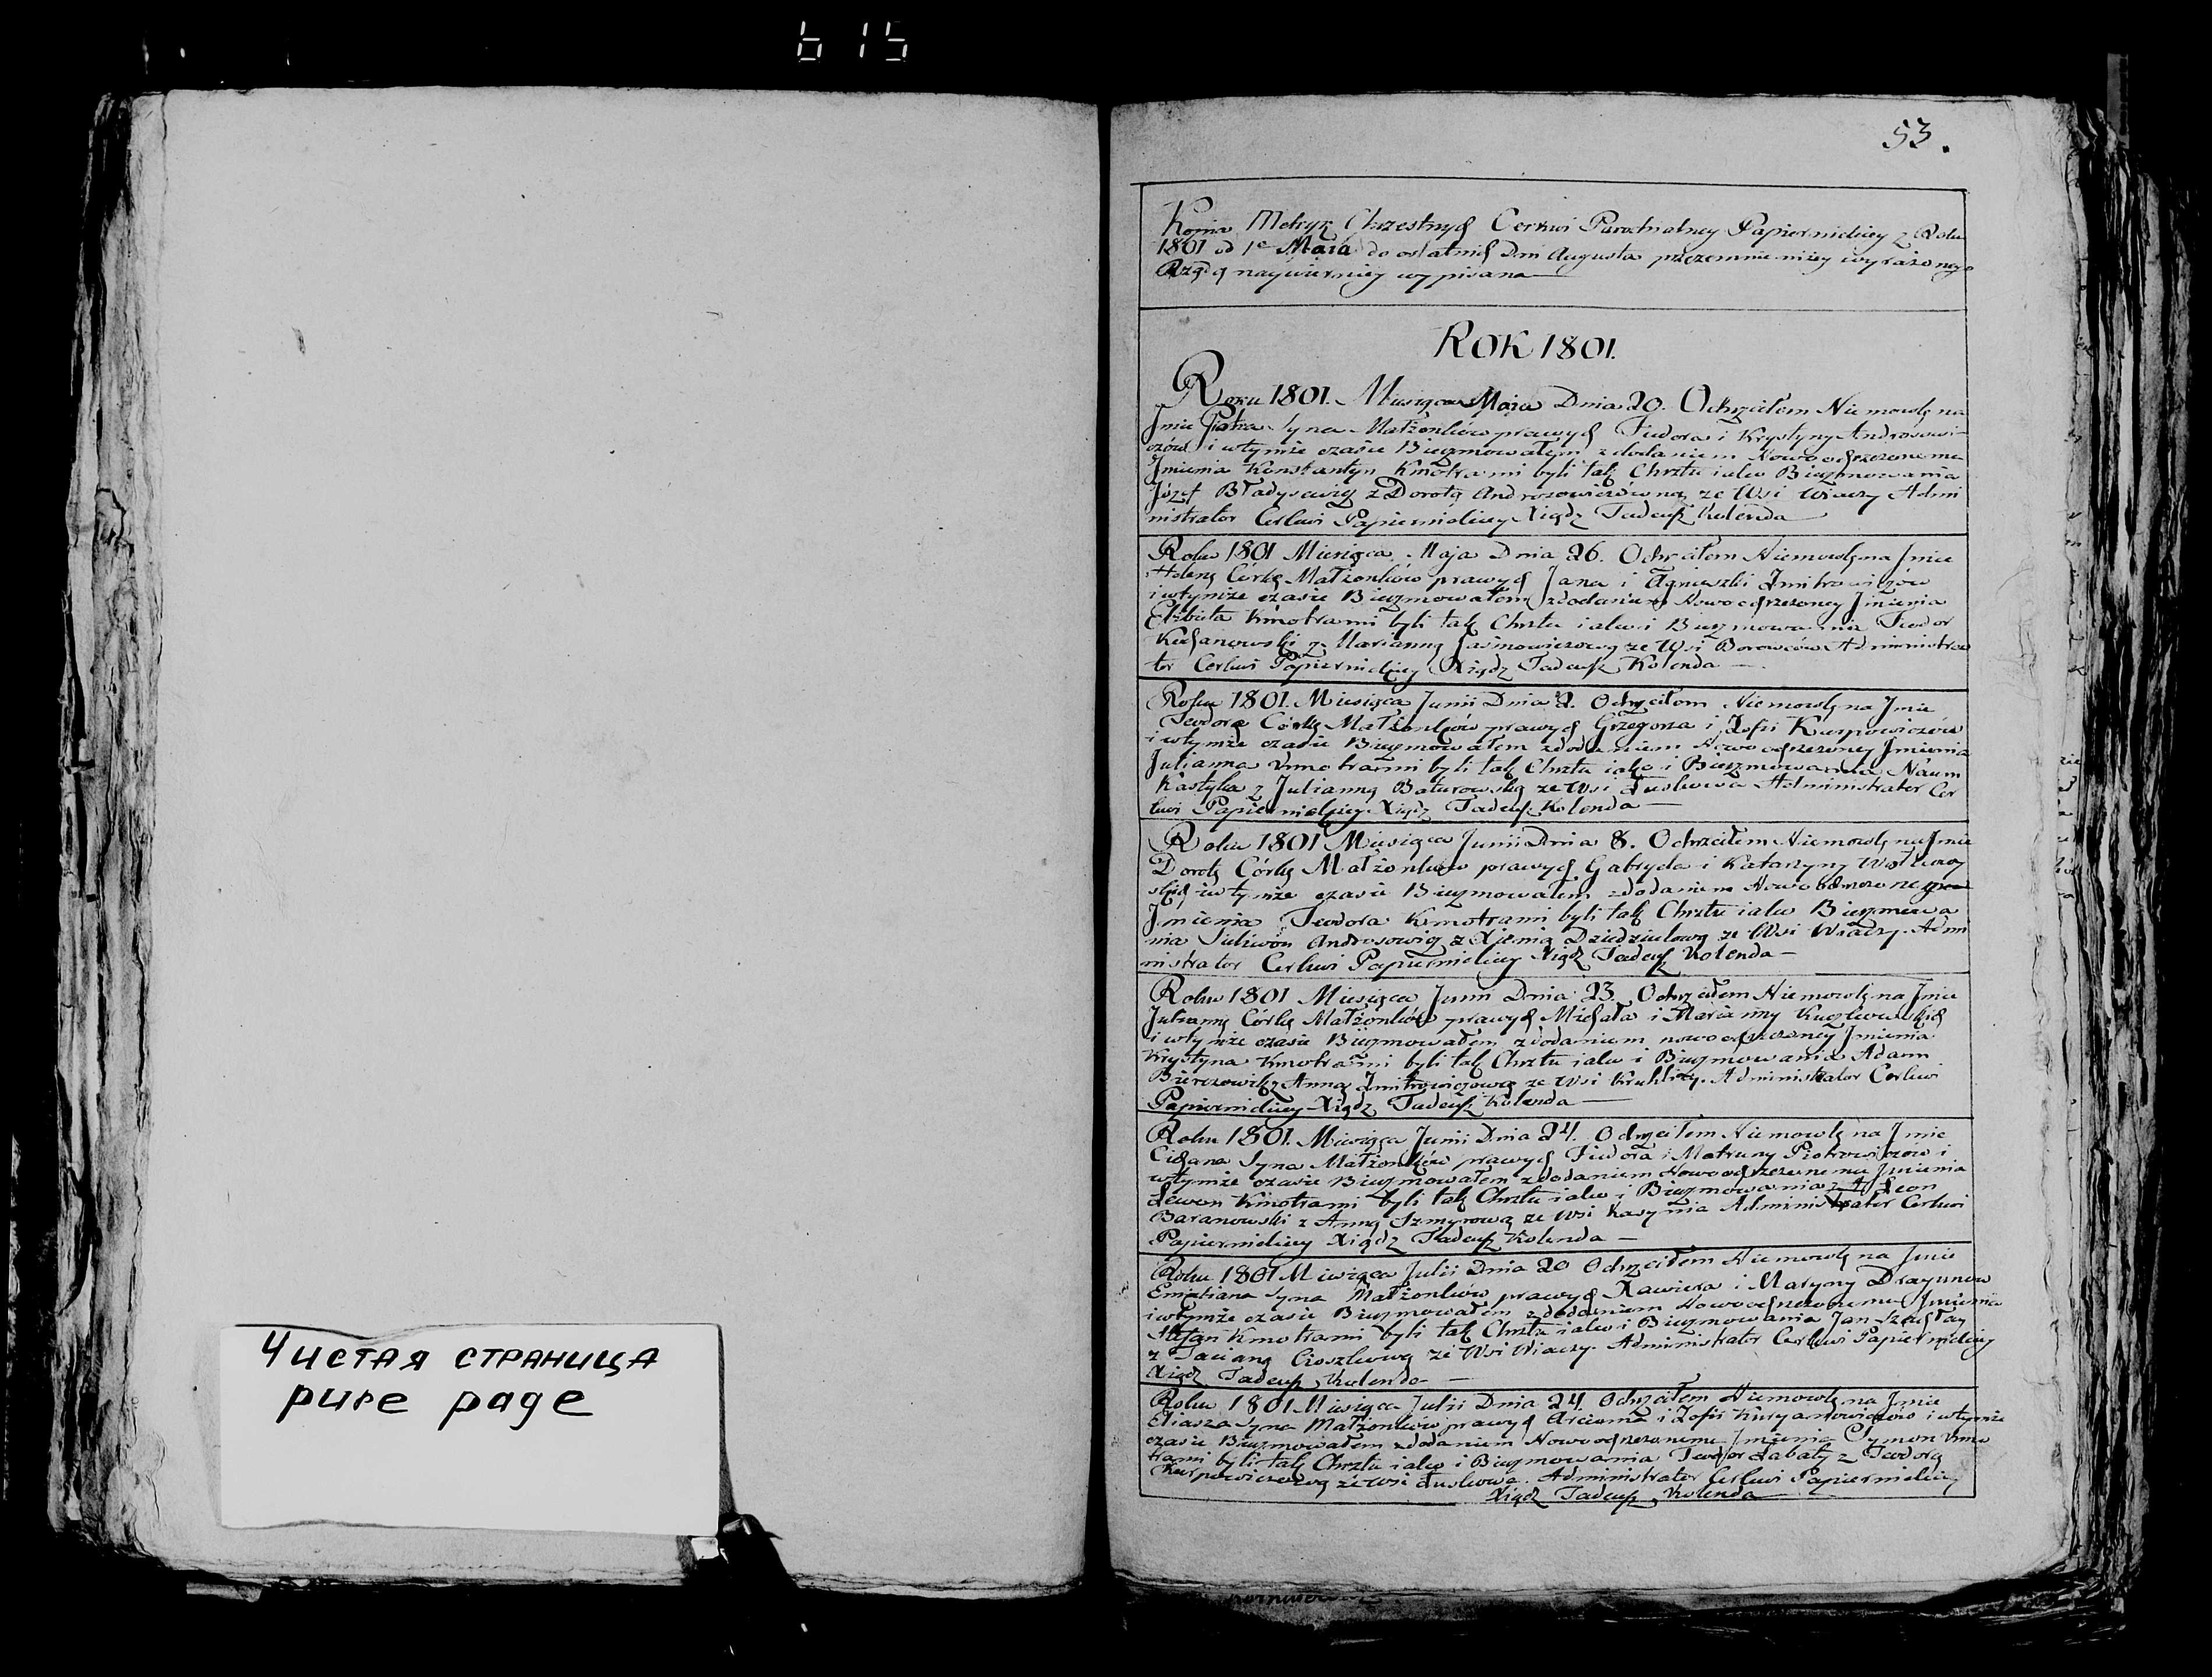 615
53.
Kopia Metryk Chrzestnych Cerkwi Parochialney Papiernickiey z Roku
1801 od 1o Maia do ostatnich Dni Augusta przezemnie niżey wyrażonego
Rządcę naywierniey wypisana
ROK 1801.
Roku 1801. Miesiąca Maja Dnia 20. Ochrzciłem Niemowlę na
Jmie Piotra Syna Małżonków prawych Fiedora i Krystyny Androsowi-
czów i wtymże czasie Bierzmowałem z dodaniem Nowoochrzczonemu
Jmienia Konstantyn Kmotrami byli tak Chrztu iako Bierzmowania
Józef Bładysewicz z Dorotą Androsowiczówną ze Wsi Wiaczy Admi
nistrator Cerkwi Papiernickiey Xiądz Tadeusz Kolenda
Roku 1801 Miesiąca Maja Dnia 26. Ochrzciłem Niemowlę na Jmie
Helenę Córkę Małżonków prawych Jana i Agnieszki Dmitrowiczów
i wtymże czasie Bierzmowałem zdodaniem Nowoochrzczoney Jmienia
Elżbieta Kmotrami byli tak Chrztu iako i Bierzmowania Teodor
Kuchanowski z Marianną Jasinowiczową ze Wsi Borowców Administra
tor Cerkwi Papiernickiey Xiądz Tadeusz Kolenda
Roku 1801. Miesiąca Junii Dnia 2. Ochrzciłem Niemowlę na Jmie
Teodorę Córkę Małżonków prawych Grzegorza i Zofii Kurpowiczów
i wtymże czasie Bierzmowałem zdodaniem Nowoochrzczoney Jmienia
Julianna Kmotrami byli tak Chrztu iako i Bierzmowania Naum
Kastyka z Julianną Baturowską ze Wsi Łuskowa Administrator Cer
kwi Papiernickiey Xiądz Tadeusz Kolenda
Roku 1801 Miesiąca Junii Dnia 8. Ochrzciłem Niemowlę na Jmie
Dorotę Córkę Małżonków prawych Gabryela i Katarzyny
skich i wtymże czasie Bierzmowałem zdodaniem
Jmienia Teodora Kmotrami byli tak Chrztu iako Bierzmowa
nia Androsowicz z Xienią Dziedziulową ze Wsi Wiaczy. Admi
nistrator Cerkwi Papiernickiey Xiądz Tadeusz Kolenda
Roku 1801 Miesiąca Junii Dnia 23. Ochrzciłem Niemowlę na Jmie
Juliannę Córkę Małżonków prawych Michała i Marianny
i wtymże czasie Bierzmowałem zdodaniem nowoochrzczoney Jmienia
Krystyna Kmotrami byli tak Chrztu iako i Bierzmowania Adam
Anną Dmitrowiczową ze Wsi Kruhlicy. Administrator Cerkwi
Papiernickiey Xiądz Tadeusz Kolenda
Roku 1801. Miesiąca Junii Dnia 24. Ochrzciłem Niemowlę na Jmie
Cichana Syna Małżonków prawych Fiedora i Matruny Piotrowiczów i
wtymże czasie Bierzmowałem zdodaniem Nowoochrzczonemu Jmienia
Lewon Kmotrami byli tak Chrztu iako i Bierzmowania Leon
Baranowski z Anną Szmyrową ze Wsi Kasynia Administrator Cerkwi
Papiernickiey Xiądz Tadeusz Kolenda
Roku 1801 Miesiąca Julii Dnia 20 Ochrzciłem Niemowlę na Jmie
Emiliana Syna Małżonków prawych Xawiera i Maryny Dragunow
i wtymże czasie Bierzmowałem zdodaniem Nowoochrzczonemu Jmienia
Stefan Kmotrami byli tak Chrztu iako i Bierzmowania Jan
z Tacianą Cioszkową ze Wsi Wiaczy. Administrator Cerkwi Papiernickiey
Xiądz Tadeusz Kolenda
Roku 1801 Miesiąca Julii Dnia 24. Ochrzciłem Niemowlę na Jmie
Eliasza Syna Małżonków prawych Arciema i Zofii i wtymże
czasie Bierzmowałem zdodaniem Nowoochrzczonemu Jmienia Symon Kmo
trami byli tak Chrztu iako i Bierzmowania Teodor Łabaty z Teodorą
Kurpowiczową ze Wsi Łuskowa. Administrator Cerkwi Papiernickiey
Xiądz Tadeusz Kolenda
Чистая страница
pure page